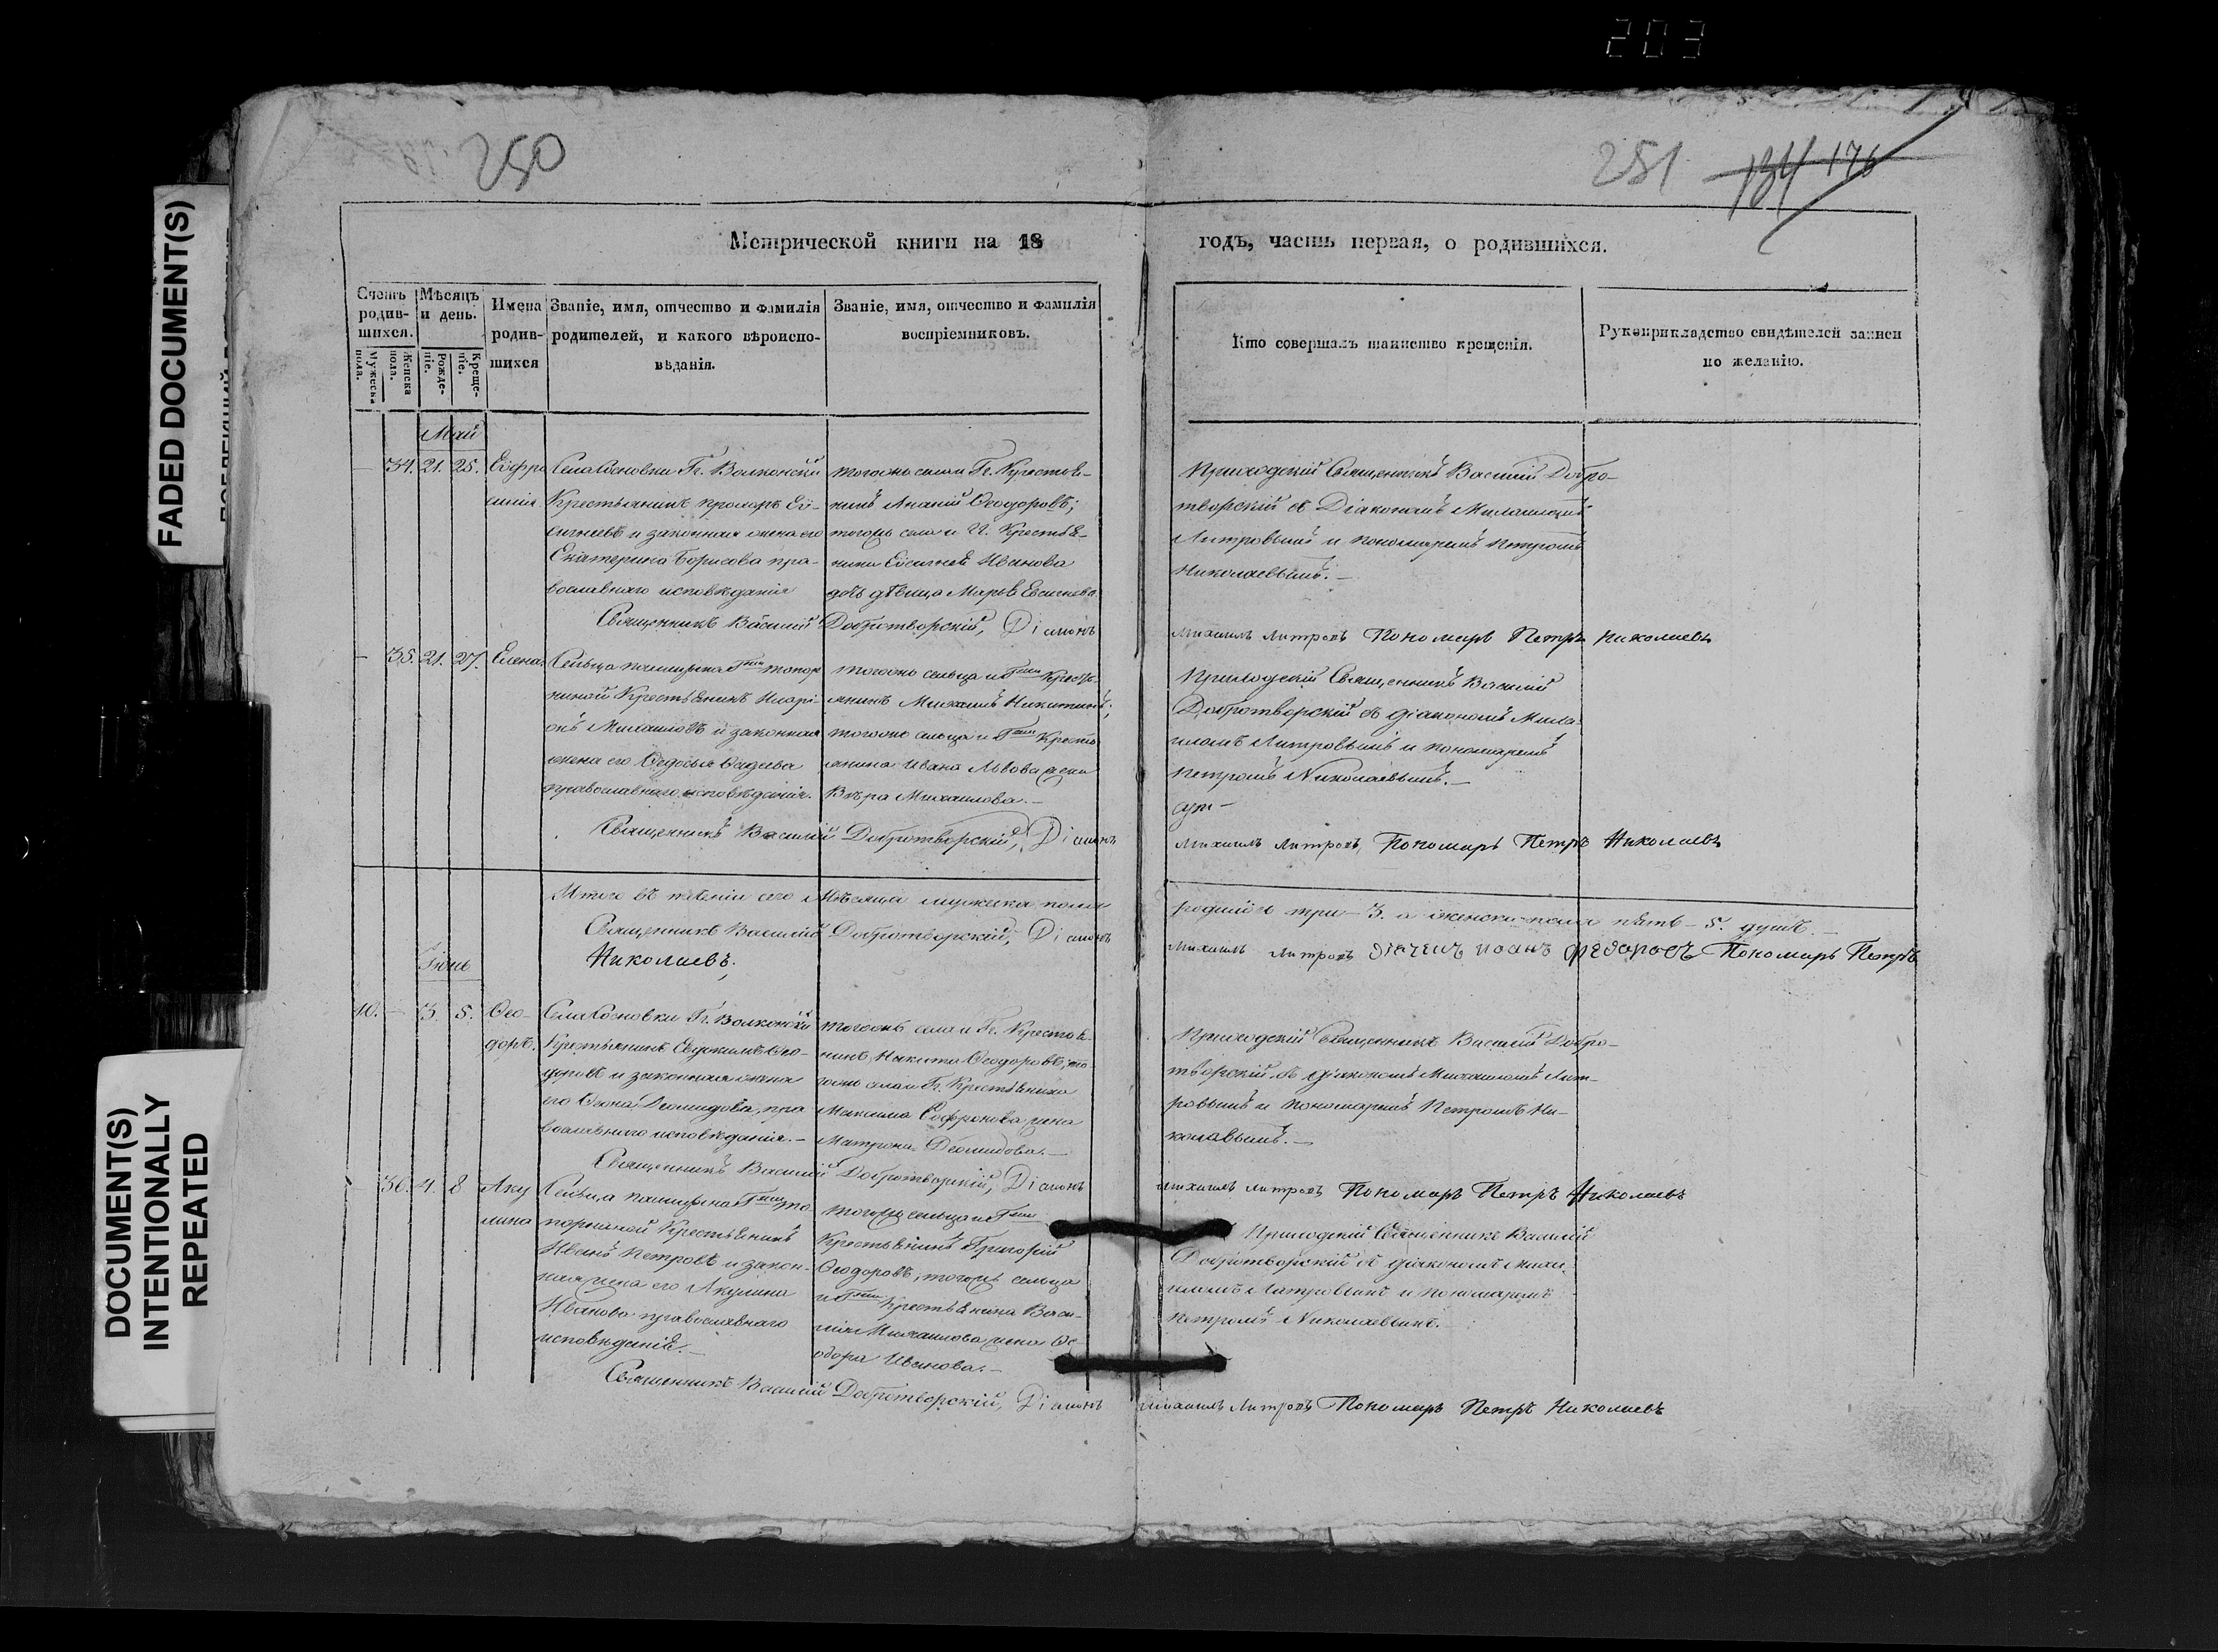 203
250
251 134 176
FADED DOCUMENT(S)
DOCUMENT(S)
INTENTIONALLY
REPEATED
Метрической книги на 18 годъ, часть первая, о родившихся.
Счетъ родив-шихся.
Мужеска пола.
Женска пола.
Мѣсяцъ и день.
Рожде-нія.
Креще-нія.
Имена родив-шихся
Званіе, имя, отчество и фамилія
родителей, и какого вѣроиспо-
вѣданія.
Званіе, имя, отчество и фамилія
воспріемниковъ.
Кто совершалъ таинство крещенія.
Рукоприкладство свидѣтелей записи
по желанію.
Май
34. 21. 25. Евфро
синія
Села Сосновки Гг. Волконскій
Крестьянинъ Еѵ-
сигнеевъ и законная жена его
Екатерина Борисова пра-
вославнаго исповѣданія
тогожъ села и Гг. Крестья-
нинъ Ананій Ѳеодоровъ;
тогожъ села и Гг. Крестья-
нина Еѵсигнея Иванова
дочь дѣвица Марья Евсигнева
Приходскій Священникъ Василій Добро-
творскій съ Діакономъ Михаиломъ
Митровымъ и пономаремъ Петромъ
Николаевымъ.—
Священникъ Василій Добротворскій, Діаконъ Михаилъ Митровъ Пономарь Петръ Николаевъ
35. 21. 27. Елена
Сельца Гжи Топор
ниной Крестьянинъ Иларі-
онъ Михаиловъ и законная
жена его Ѳедосья Ѳадеева
православнаго исповѣданія.
тогожъ сельца и Гжи Кресть-
янинъ Михаилъ Никитинъ;
тогожъ сельца и Гжи Кресть
янина Ивана Львова жена
Вѣра Михаилова.—
Приходскій Священникъ Василій
Добротворскій съ діакономъ Миха-
иломъ Митровымъ и пономаремъ
Петромъ Николаевымъ.—
Священникъ Василій Добротворскій, Діаконъ Михаилъ Митровъ, Пономарь Петръ Николаевъ
Итого въ теченіи сего Мѣсяца мужеска пола родилось три — 3. а женска пола пять — 5. душъ.—
Священникъ Василій Добротворскій, Діаконъ Михаилъ Митровъ дьячекъ иоанъ федоровъ Пономарь Петръ
Николаевъ.
Іюнь
10. — 3. 5. Ѳео-
доръ.
Села Сосновки Гг. Волконскій
Крестьянинъ Евдокимъ Ѳео-
доровъ и законная жена
его Леонидова, пра
вославнаго исповѣданія.—
тогожъ села и Гг. Крестья-
нинъ Никита Ѳеодоровъ; то-
гожъ села и Гг. Крестьянина
Максима Софронова жена
Матрона Леонидова.—
Приходскій Священникъ Василій Добро-
творскій съ діакономъ Михаиломъ Мит-
ровымъ и пономаремъ Петромъ Ни-
колаевымъ.—
Священникъ Василій Добротворскій, Діаконъ Михаилъ Митровъ Пономарь Петръ Николаевъ
36. 4. 8 Аку
лина
Сельца Гжи То
порниной Крестьянинъ
Иванъ Петровъ и закон-
ная жена его Акулина
Иванова православнаго
исповѣданія.—
тогожъ сельца и Гжи
Крестьянинъ Григорій
Ѳеодоровъ; тогожъ сельца
и Гжи Крестьянина Васи-
лія Михаилова жена Ѳе
одора Иванова.—
Приходскій Священникъ Василій
Добротворскій съ діакономъ Миха
иломъ Митровымъ и пономаремъ
Петромъ Николаевымъ.
Священникъ Василій Добротворскій, Діаконъ Михаилъ Митровъ Пономарь Петръ Николаевъ